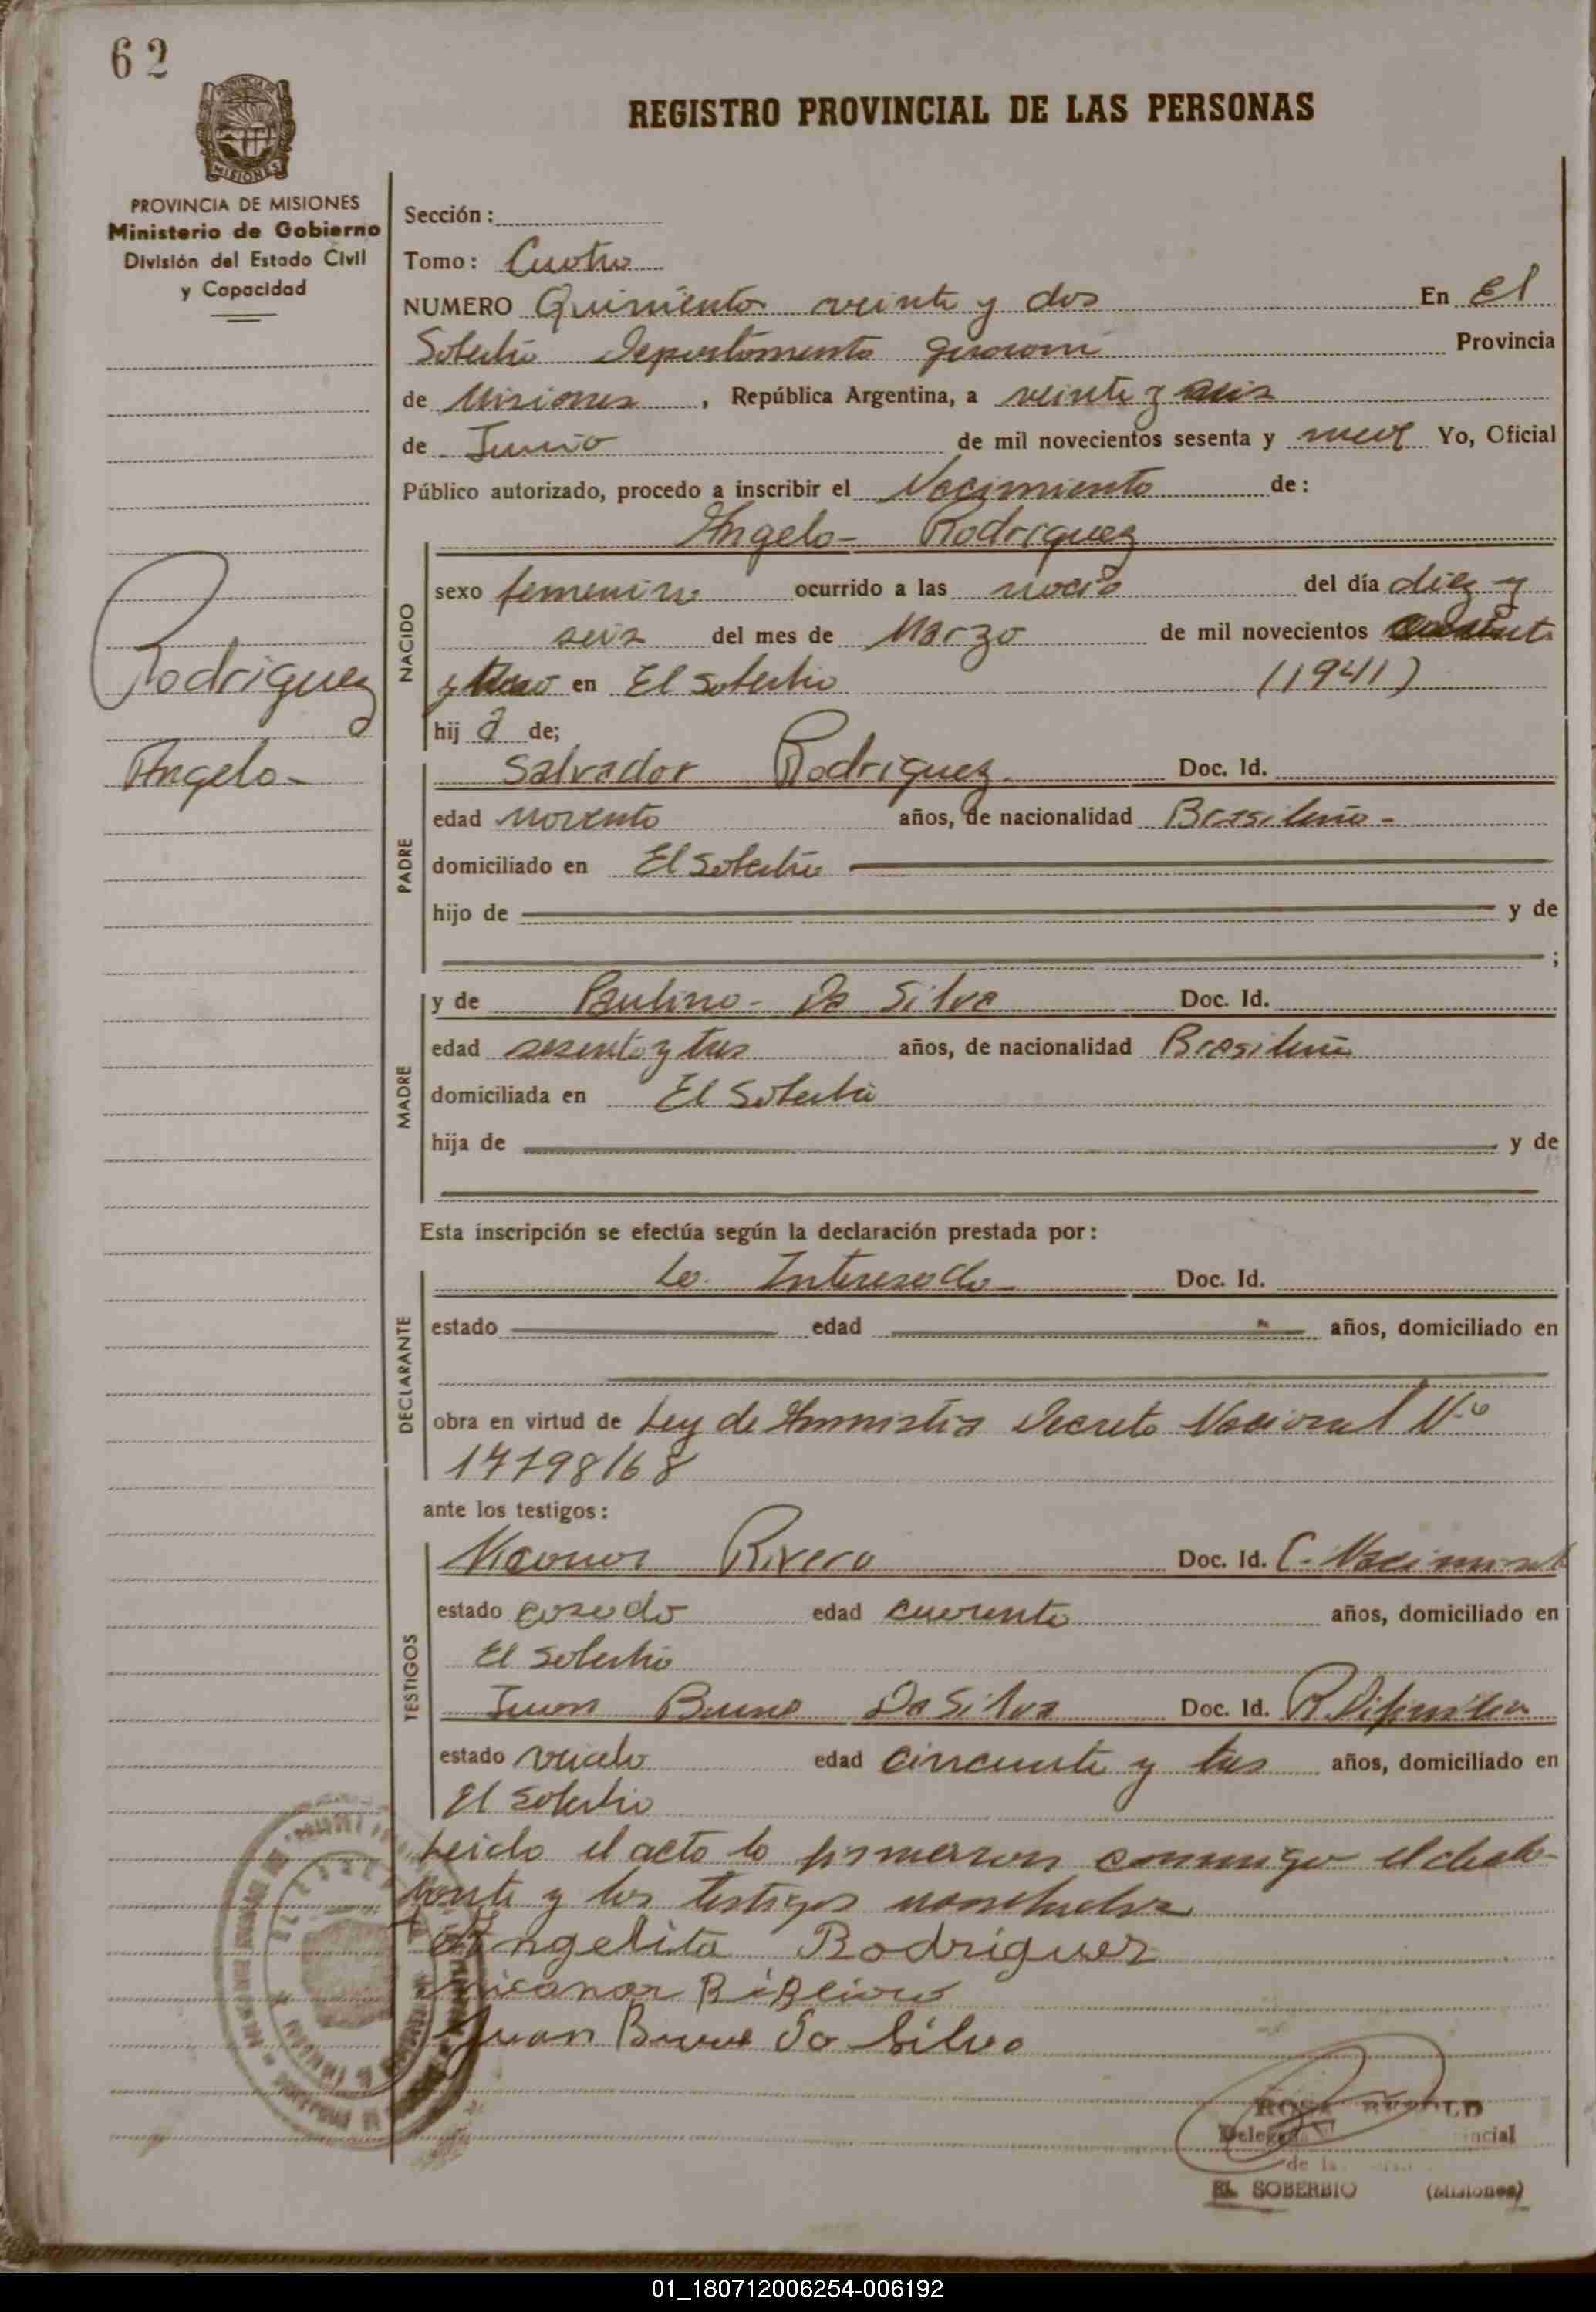 62
PROVINCIA DE MISIONES
MISIONES
REGISTRO PROVINCIAL DE LAS PERSONAS
PROVINCIA DE MISIONES
Ministerio de Gobierno
División del Estado Civil
y Capacidad
Sección:
Tomo: Cuatro
NUMERO Quiniento veinte y dos En El
Soberbio Departamento Guarani Provincia
de Misiones, República Argentina, a veinte y seis
de Junio de mil novecientos sesenta y nueve Yo, Oficial
Público autorizado, procedo a inscribir el Nacimiento de:
Angela- Rodriguez
NACIDO
sexo femenino ocurrido a las del día diez y
seis del mes de Marzo de mil novecientos
y uno en El Soberbio (1941)
hij a de;
Rodriguez
Angela-
PADRE
Salvador Rodriguez. Doc. Id.
edad noventa años, de nacionalidad Brasileño-
domiciliado en El Soberbio
hijo de y de
;
MADRE
y de Paulina- Da Silva Doc. Id.
edad sesenta y tres años, de nacionalidad Brasileña
domiciliada en El Soberbio
hija de y de
Esta inscripción se efectúa según la declaración prestada por:
DECLARANTE
La Interesada Doc. Id.
estado edad años, domiciliado en
obra en virtud de Ley de Amnistia Decreto Nacional Nº
17798/68
ante los testigos:
TESTIGOS
Nicanor Rivero Doc. Id. C. Nacimient
estado casado edad cuarenta años, domiciliado en
El Soberbio
Juan Bueno Da Silva Doc. Id.
estado viudo edad cincuenta y tres años, domiciliado en
El Soberbio
Leido el acta la firmaron conmigo el decla-
rante y los testigos nombrados
Angelita Rodriguez
nicanor
Juan Bueno Da Silva
ROSA
EL SOBERBIO (Misiones)
01_180712006254-006192